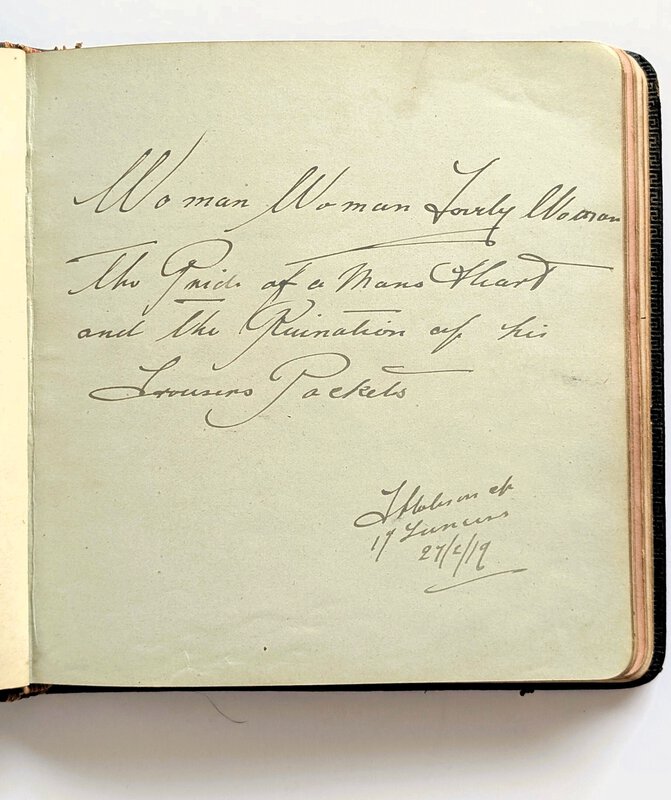 Woman Woman Lovely Woman
The Pride of a Mans Heart
and the Ruination of his
Trousers Pockets
17 Lancers
27/2/19